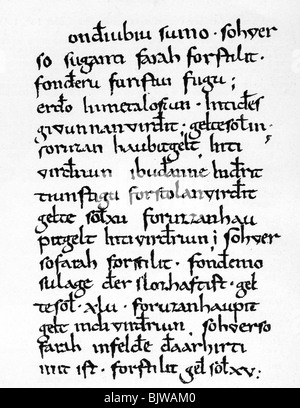 ondiubiu suino · sohver
so suganti farah forstilit ·
fonderu furistun stigu ;
erdo inmetalostun · intides
giuunnan virdit ; geltesol iii ·
foruzan haubitgelt inti
virdriun ibudanne indrit
tiunstigu forstolan virdit
gelte sol xu foruzzanhau
pitgelt inti virdriun ; sohver
sofarah forstilit · fondemo
sulage der slozhaftist · gel
tesol · xlv · foruzanhaupit
gelt indi virdriun sohverso
farah infelde daarhirti
mit ist · forstilit gel sol xv :
alamy
BJWAM0
www.alamy.com